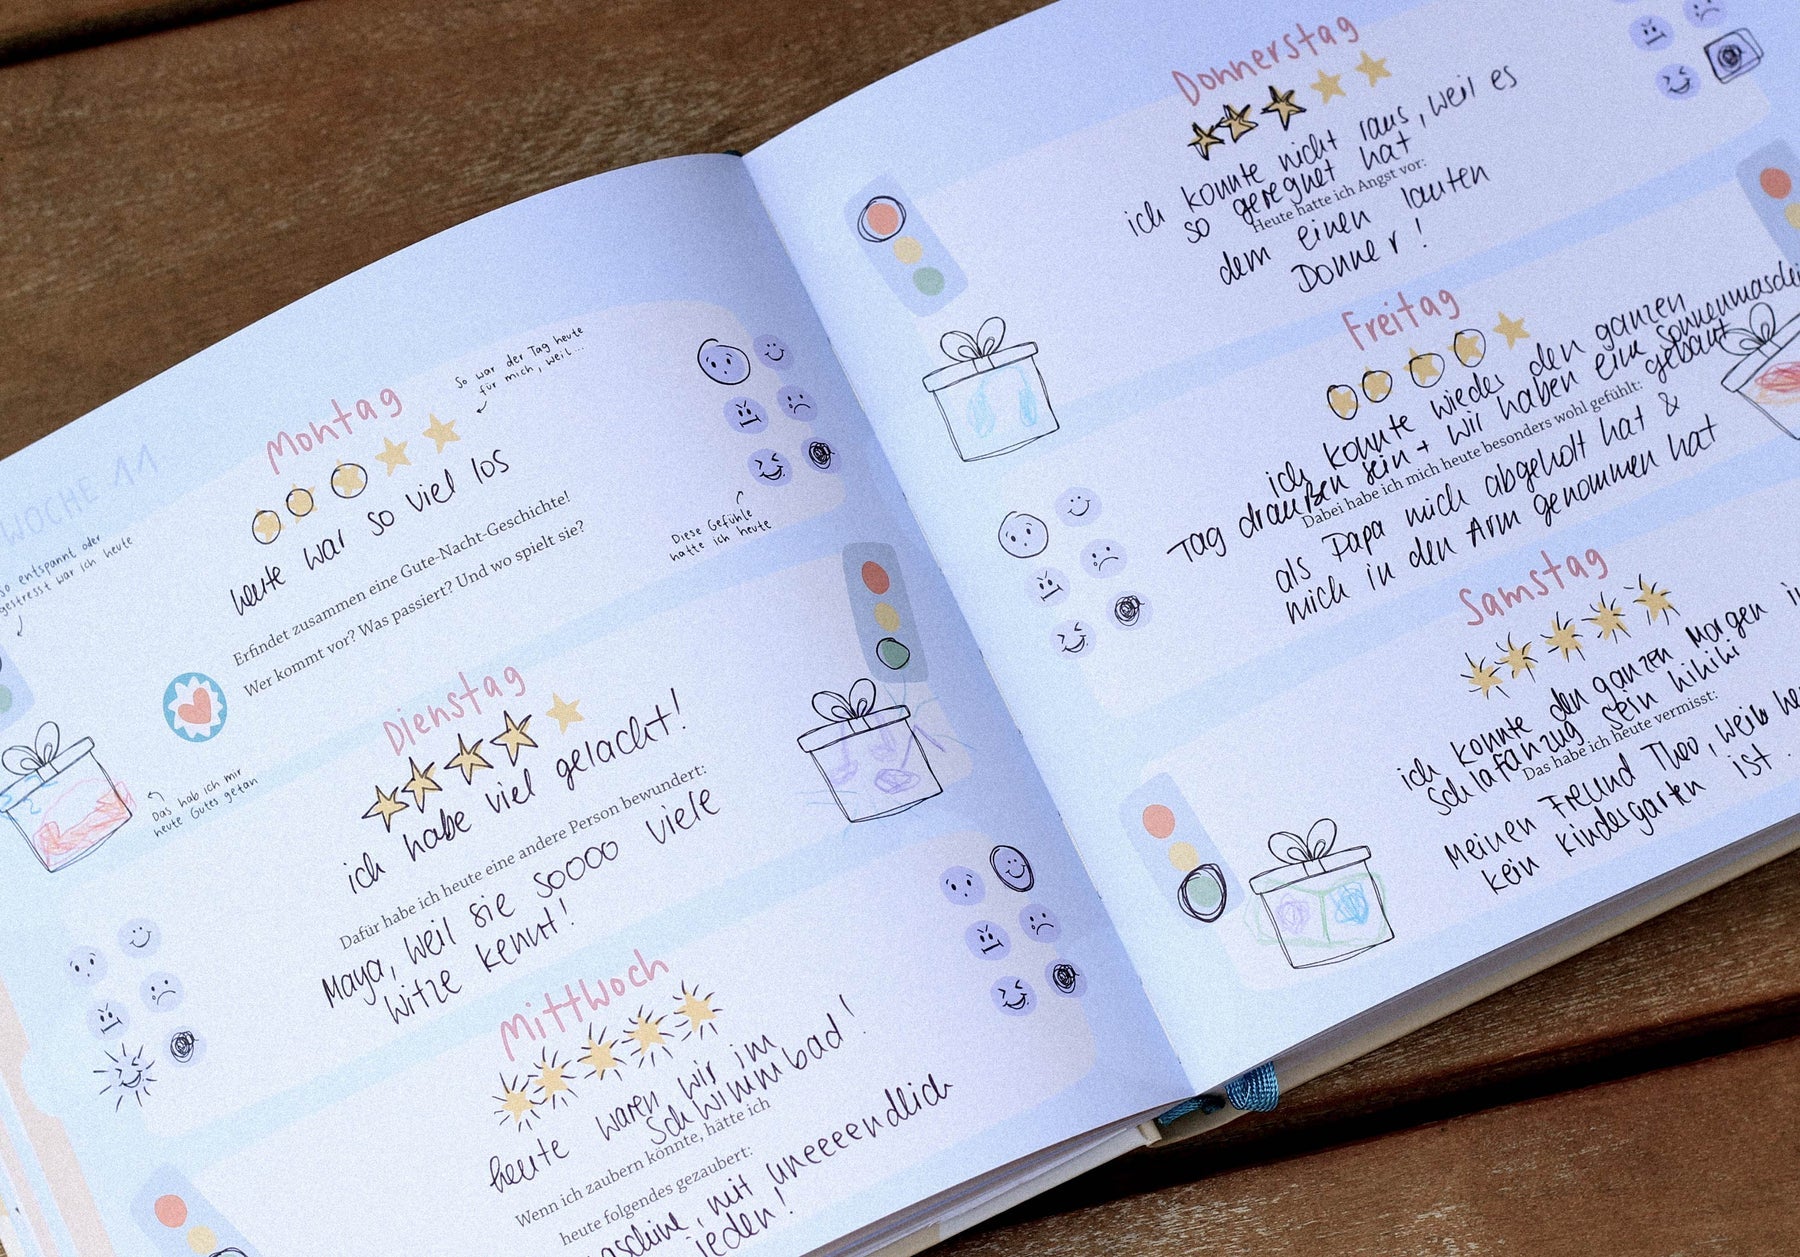 WOCHE 11
so entspannt oder
gestresst war ich heute
Montag
So war der Tag heute
für mich, weil...
heute war so viel los
Erfindet zusammen eine Gute-Nacht-Geschichte!
Wer kommt vor? Was passiert? Und wo spielt sie?
Diese Gefühle
hatte ich heute
Das hab ich mir
heute Gutes getan
Dienstag
ich habe viel gelacht!
Dafür habe ich heute eine andere Person bewundert:
Maya, weil sie soooo viele
Witze kennt!
Mittwoch
heute waren wir im
Schwimmbad!
Wenn ich zaubern könnte, hätte ich
heute folgendes gezaubert:
mit uneeeendlich
jeden!
Donnerstag
ich konnte nicht raus, weil es
so geregnet hat
Heute hatte ich Angst vor:
dem einen lauten
Donner!
Freitag
ich konnte wieder den ganzen
Tag draußen sein + wir haben eine
gebaut
Dabei habe ich mich heute besonders wohl gefühlt:
als Papa mich abgeholt hat &
mich in den Arm genommen hat
Samstag
ich konnte den ganzen Morgen
Schlafanzug sein hihihi
Das habe ich heute vermisst:
Meinen Freund Theo, weil
kein Kindergarten ist.